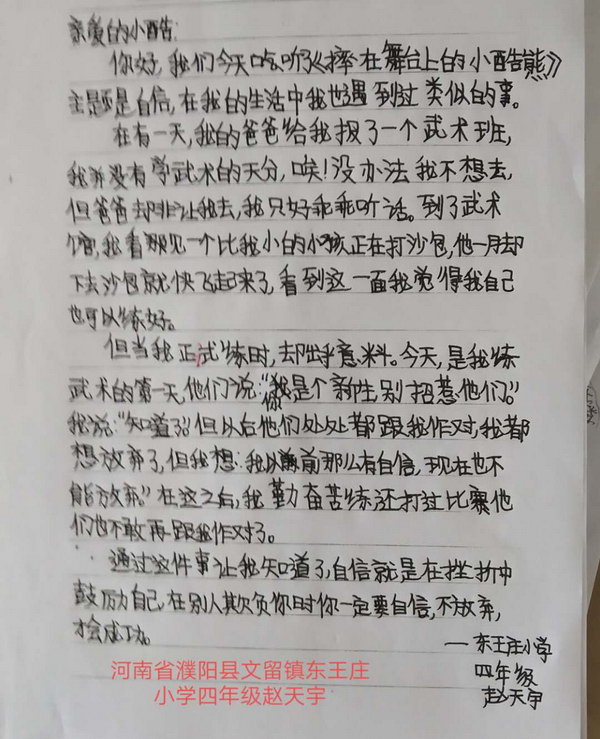 亲爱的小酷:
你好,我们今天吃听了《摔在舞台上的小酷熊》
主题是自信,在我的生活中我也遇到过类似的事。
在有一天,我的爸爸给我报了一个武术班,
我并没有学武术的天分,唉!没办法我不想去,
但爸爸却非让我去,我只好乖乖听话。到了武术
馆,我看那见一个比我小的小孩正在打沙包,他一脚
下去沙包就快飞起来了,看到这一面我觉得我自己
也可以练好。
但当我正式练时,却出乎意料。今天,是我练
武术的第一天,他们说:“你是个新生,别招惹他们。”
我说:“知道了”但以后他们处处都跟我作对,我都
想放弃了,但我想:我以前那么有自信,现在也不
能放弃”在这之后,我勤奋苦练还打过比赛他
们也不敢再跟我作对了。
通过这件事让我知道了,自信就是在挫折中
鼓励自己,在别人欺负你时你一定要自信,不放弃,
才会成功。
——东王庄小学
四年级
赵天宇
河南省濮阳县文留镇东王庄
小学四年级赵天宇